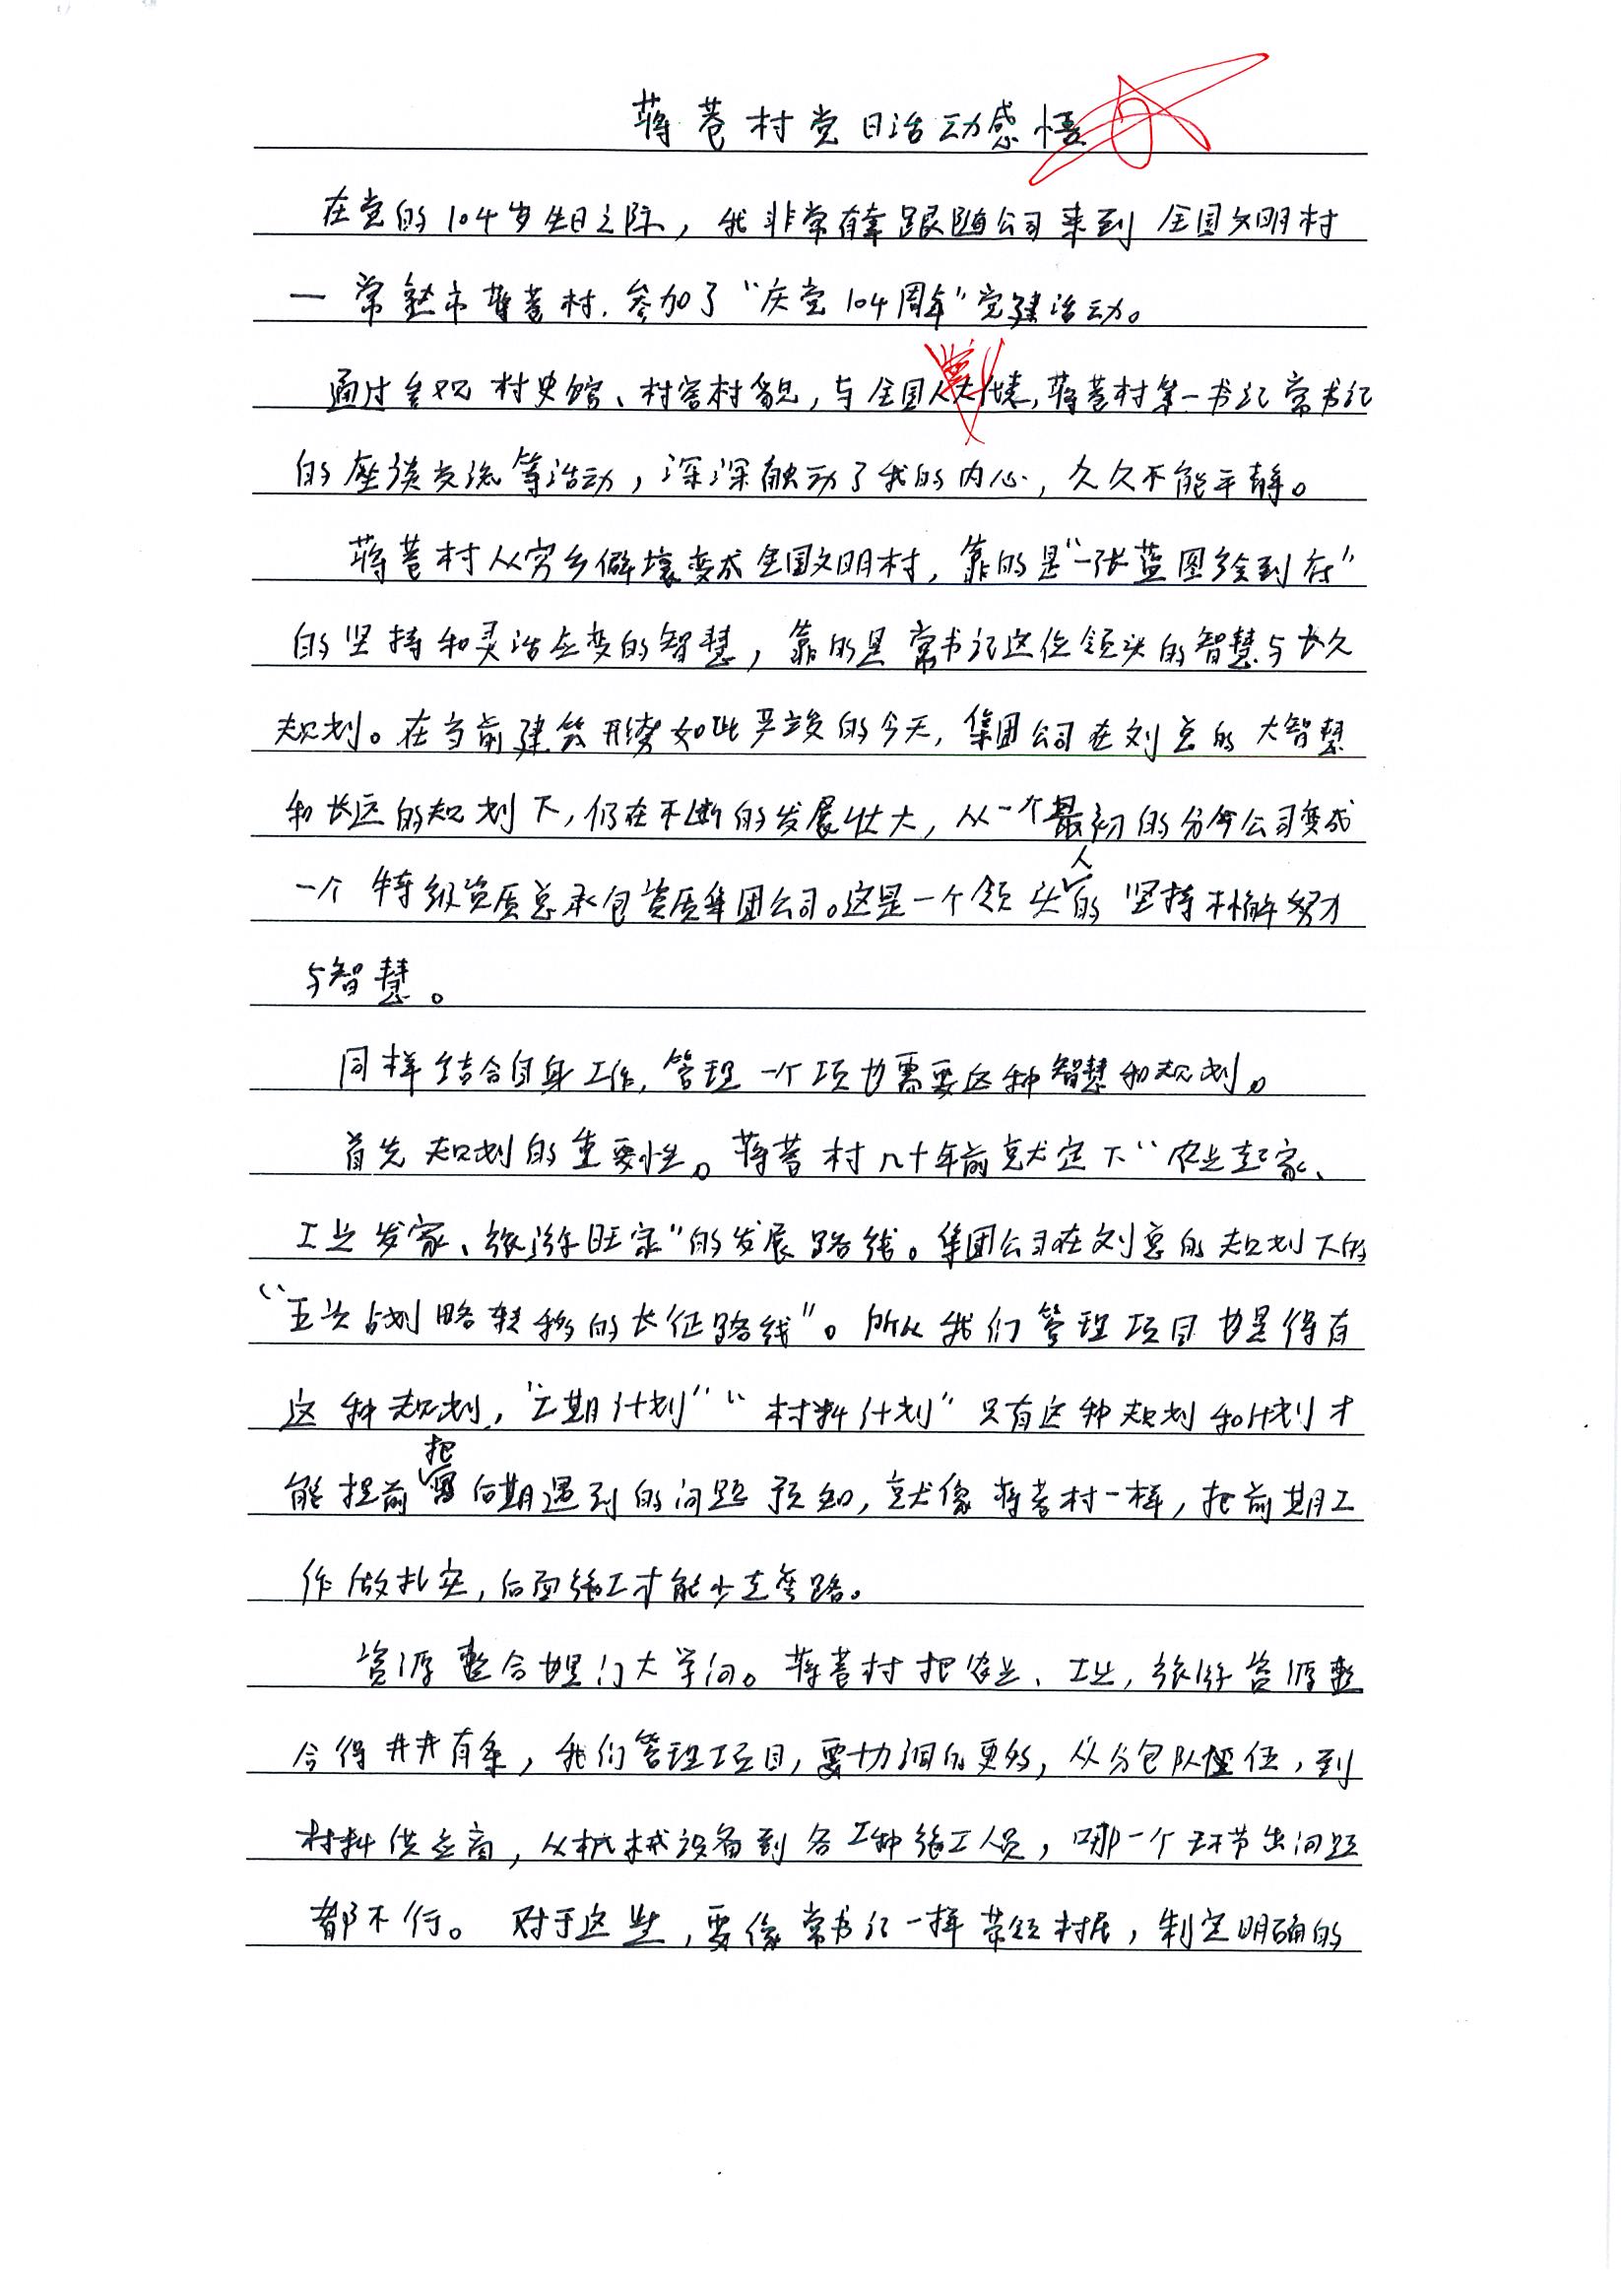 蒋巷村党日活动感悟
在党的104岁生日之际，我非常有幸跟随公司来到全国文明村
一常熟市蒋巷村，参加了“庆党104周年”党建活动。
通过参观村史馆、村容村貌，与全国人大代表，蒋巷村第一书记常书记
的座谈交流等活动，深深触动了我的内心，久久不能平静。
蒋巷村从穷乡僻壤变成全国文明村，靠的是“一张蓝图绘到底”
的坚持和灵活应变的智慧，靠的是常书记这位领头的智慧与长久
规划。在当前建筑形势如此严峻的今天，集团公司在刘总的大智慧
和长远的规划下，仍在不断的发展壮大，从一个最初的分公司变成
一个特级资质总承包资质集团公司。这是一个领头人的坚持不懈努力
与智慧。
同样结合自身工作，管理一个项也需要这种智慧和规划。
首先规划的重要性。蒋巷村几十年前就定下“农业起家、
工业发家、旅游旺家”的发展路线。集团公司在刘总的规划下的
“五次战略转移的长征路线”。所以我们管理项目也是得有
这种规划，“工期计划”“材料计划”只有这种规划和计划才
能提前把后期遇到的问题预知，就像蒋巷村一样，把前期工
作做扎实，后面施工才能少走弯路。
资源整合也是门大学问。蒋巷村把农业、工业，旅游资源整
合得井井有条，我们管理项目，要协调的更多，从分包队伍，到
材料供应商，从机械设备到各工种施工人员，哪一个环节出问题
都不行。对于这些，要像常书记一样带领村民，制定明确的